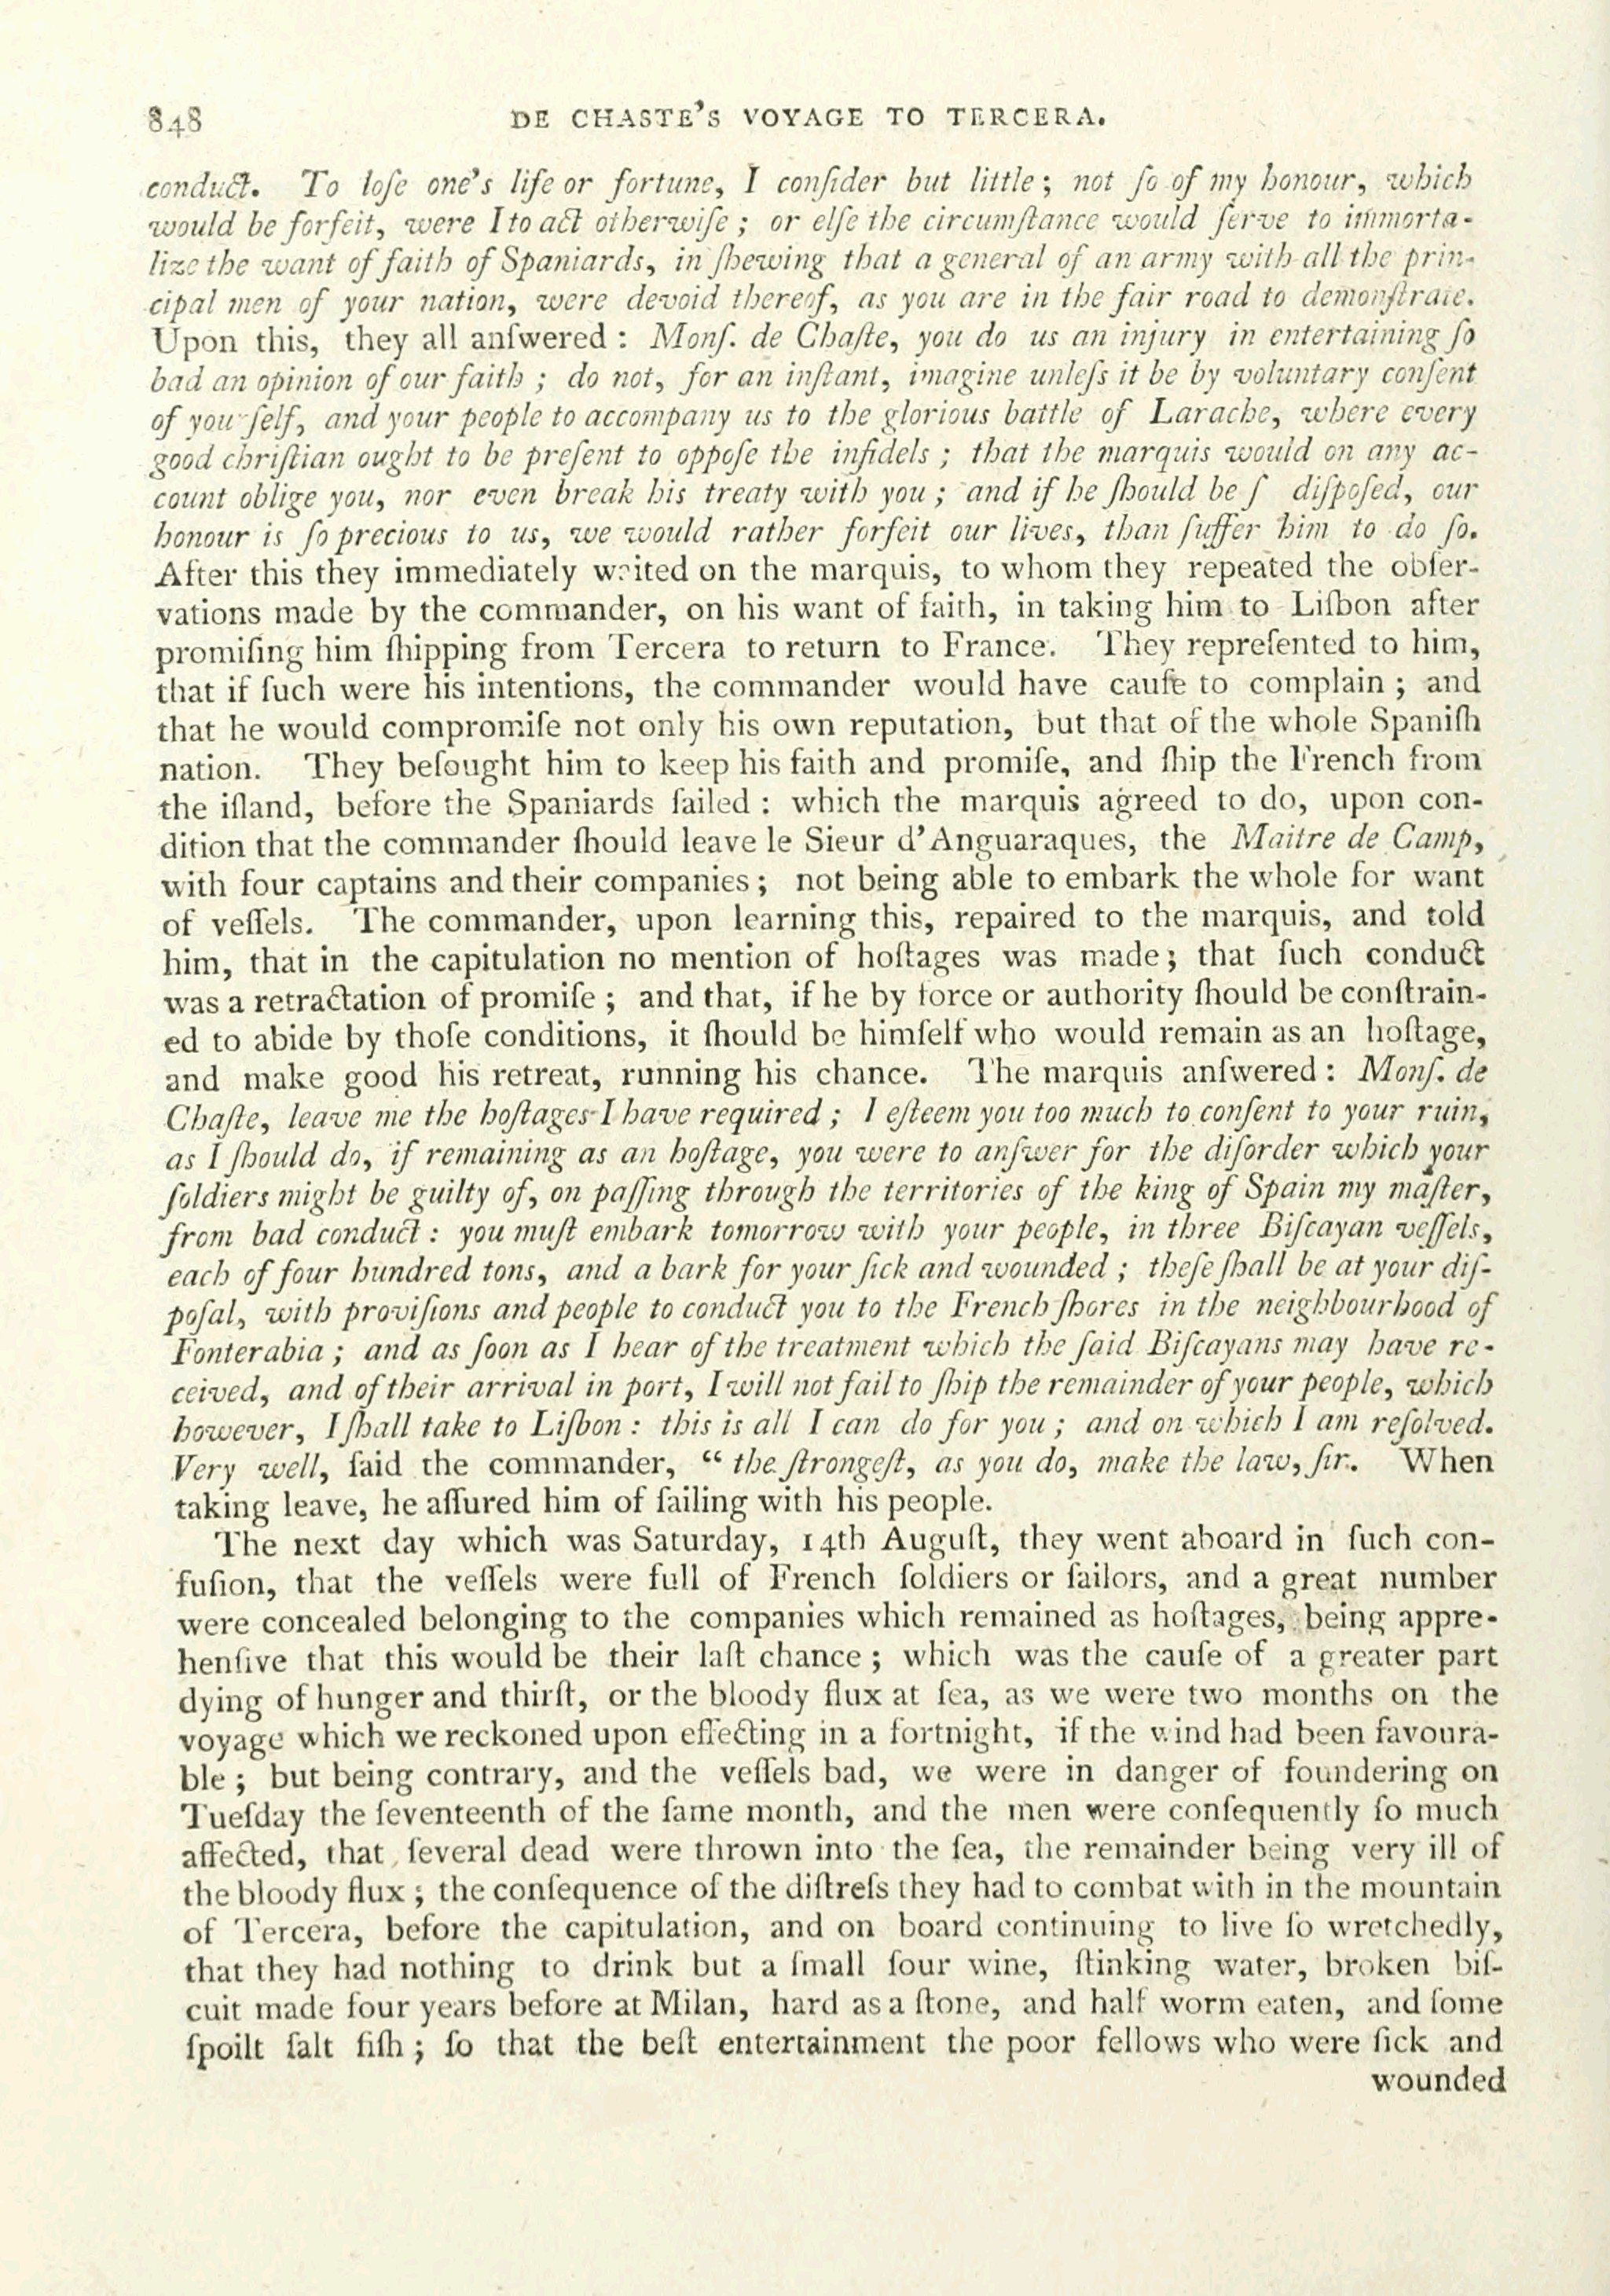 848 DE CHASTE'S VOYAGE TO TERCERA.
conduct. To loſe one's life or fortune, I conſider but little; not ſo of my honour, which
would be forfeit, were I to act otherwiſe; or elſe the circumſtance would ſerve to immorta-
lize the want of faith of Spaniards, in ſhewing that a general of an army with all the prin-
cipal men of your nation, were devoid thereof, as you are in the fair road to demonſtrate.
Upon this, they all anſwered: Monſ. de Chaſte, you do us an injury in entertaining ſo
bad an opinion of our faith; do not, for an inſtant, imagine unleſs it be by voluntary conſent
of yourſelf, and your people to accompany us to the glorious battle of Larache, where every
good chriſtian ought to be preſent to oppoſe the infidels; that the marquis would on any ac-
count oblige you, nor even break his treaty with you; and if he ſhould be ſ diſpoſed, our
honour is ſo precious to us, we would rather forfeit our lives, than ſuffer him to do ſo.
After this they immediately waited on the marquis, to whom they repeated the obſer-
vations made by the commander, on his want of faith, in taking him to Liſbon after
promiſing him ſhipping from Tercera to return to France. They repreſented to him,
that if ſuch were his intentions, the commander would have cauſe to complain; and
that he would compromiſe not only his own reputation, but that of the whole Spaniſh
nation. They beſought him to keep his faith and promiſe, and ſhip the French from
the iſland, before the Spaniards ſailed: which the marquis agreed to do, upon con-
dition that the commander ſhould leave le Sieur d'Anguaraques, the Maitre de Camp,
with four captains and their companies; not being able to embark the whole for want
of veſſels. The commander, upon learning this, repaired to the marquis, and told
him, that in the capitulation no mention of hoſtages was made; that ſuch conduct
was a retractation of promiſe; and that, if he by force or authority ſhould be conſtrain-
ed to abide by thoſe conditions, it ſhould be himſelf who would remain as an hoſtage,
and make good his retreat, running his chance. The marquis anſwered: Monſ. de
Chaſte, leave me the hoſtages I have required; I eſteem you too much to conſent to your ruin,
as I ſhould do, if remaining as an hoſtage, you were to anſwer for the diſorder which your
ſoldiers might be guilty of, on paſſing through the territories of the king of Spain my maſter,
from bad conduct: you muſt embark tomorrow with your people, in three Biſcayan veſſels,
each of four hundred tons, and a bark for your ſick and wounded; theſe ſhall be at your diſ-
poſal, with proviſions and people to conduct you to the French ſhores in the neighbourhood of
Fonterabia; and as ſoon as I hear of the treatment which the ſaid Biſcayans may have re-
ceived, and of their arrival in port, I will not fail to ſhip the remainder of your people, which
however, I ſhall take to Liſbon: this is all I can do for you; and on which I am reſolved.
Very well, ſaid the commander, “ the ſtrongeſt, as you do, make the law, ſir. When
taking leave, he aſſured him of ſailing with his people.
The next day which was Saturday, 14th Auguſt, they went aboard in ſuch con-
fuſion, that the veſſels were full of French ſoldiers or ſailors, and a great number
were concealed belonging to the companies which remained as hoſtages, being appre-
henſive that this would be their laſt chance; which was the cauſe of a greater part
dying of hunger and thirſt, or the bloody flux at ſea, as we were two months on the
voyage which we reckoned upon effecting in a fortnight, if the wind had been favoura-
ble; but being contrary, and the veſſels bad, we were in danger of foundering on
Tueſday the ſeventeenth of the ſame month, and the men were conſequently ſo much
affected, that ſeveral dead were thrown into the ſea, the remainder being very ill of
the bloody flux; the conſequence of the diſtreſs they had to combat with in the mountain
of Tercera, before the capitulation, and on board continuing to live ſo wretchedly,
that they had nothing to drink but a ſmall ſour wine, ſtinking water, broken biſ-
cuit made four years before at Milan, hard as a ſtone, and half worm eaten, and ſome
ſpoilt ſalt fiſh; ſo that the beſt entertainment the poor fellows who were ſick and
wounded